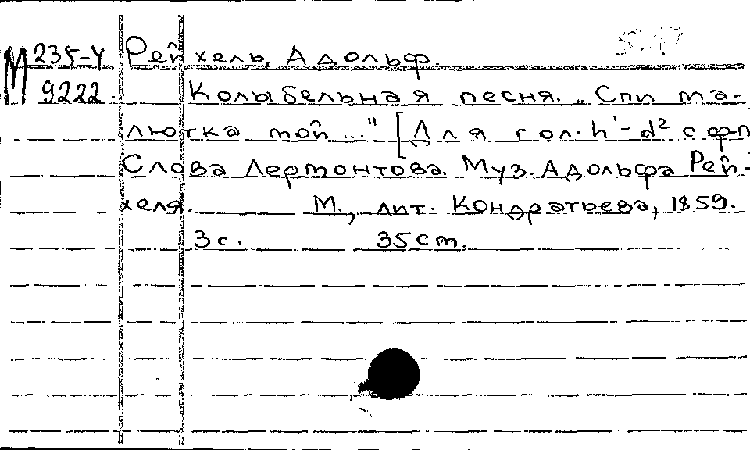 М 235-У Рейхель, Адольф.
9222. Колыбельная песня. „Спи ма-
лютка мой..." [Для гол. h'-d² с ф-п
Слова Лермонтова. Муз. Адольфа Рей-
хеля. М., лит. Кондратьева, 1859.
3 с. 35 cm.